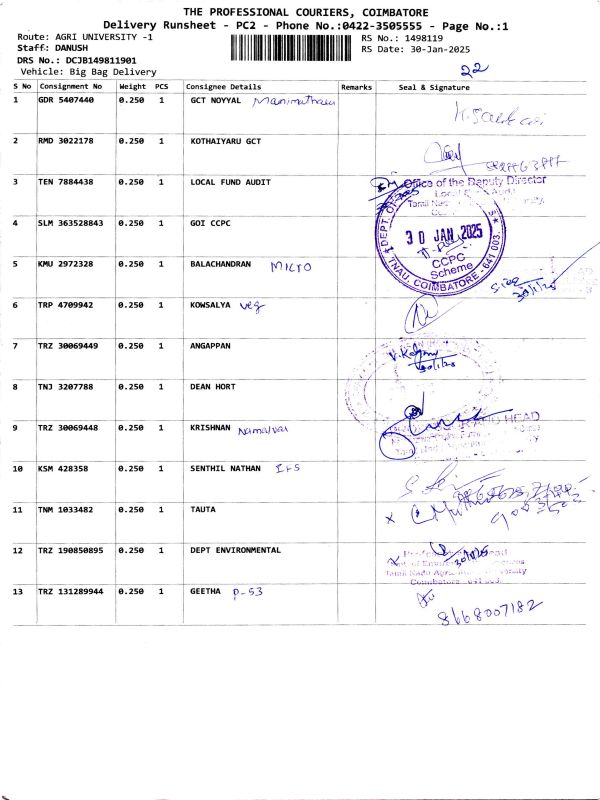 THE PROFESSIONAL COURIERS, COIMBATORE
Delivery Runsheet - PC2 - Phone No.:0422-3505555 - Page No.:1
Route: AGRI UNIVERSITY -1
RS No.: 1498119
Staff: DANUSH
RS Date: 30-Jan-2025
DRS No.: DCJB149811901
Vehicle: Big Bag Delivery
22
S No Consignment No Weight PCS Consignee Details Remarks Seal & Signature
1 GDR 5407440 0.250 1 GCT NOYYAL
2 RMD 3022178 0.250 1 KOTHAIYARU GCT
3 TEN 7884438 0.250 1 LOCAL FUND AUDIT
Office of the Deputy Director
4 SLM 363528843 0.250 1 GOI CCPC
30 JAN 2025
CCPC
Scheme
TNAU, COIMBATORE - 641 003.
5 KMU 2972328 0.250 1 BALACHANDRAN MICRO
30/1/25
6 TRP 4709942 0.250 1 KOWSALYA veg
7 TRZ 30069449 0.250 1 ANGAPPAN
30/1/25
8 TNJ 3207788 0.250 1 DEAN HORT
9 TRZ 30069448 0.250 1 KRISHNAN
HEAD
10 KSM 428358 0.250 1 SENTHIL NATHAN IFS
11 TNM 1033482 0.250 1 TAUTA
12 TRZ 190850895 0.250 1 DEPT ENVIRONMENTAL
13 TRZ 131289944 0.250 1 GEETHA P-53
8668007182